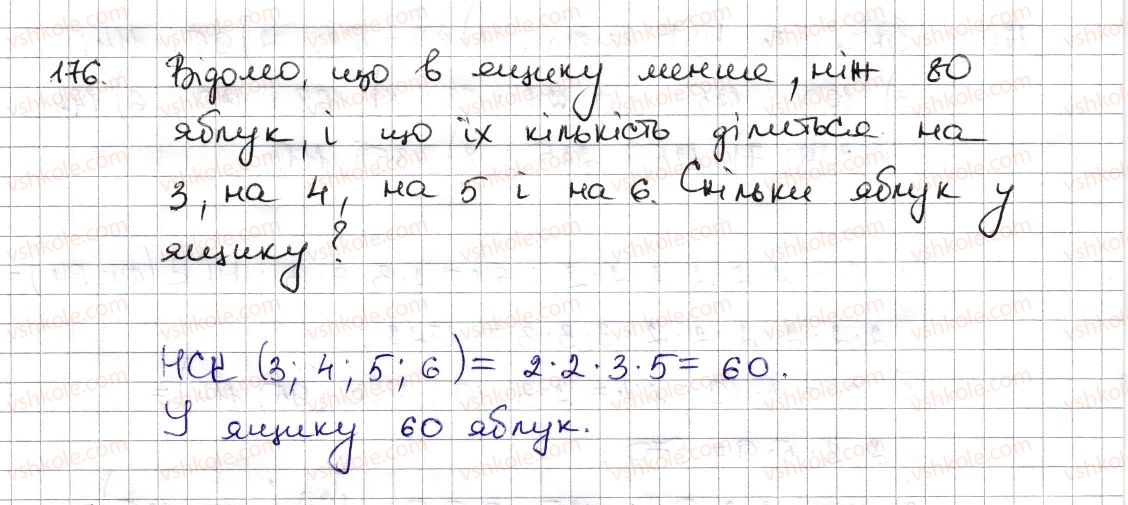 176. Відомо, що в ящику менше, ніж 80
яблук, і що їх кількість ділиться на
3, на 4, на 5 і на 6. Скільки яблук у
ящику?
НСК (3; 4; 5; 6) = 2·2·3·5 = 60.
У ящику 60 яблук.